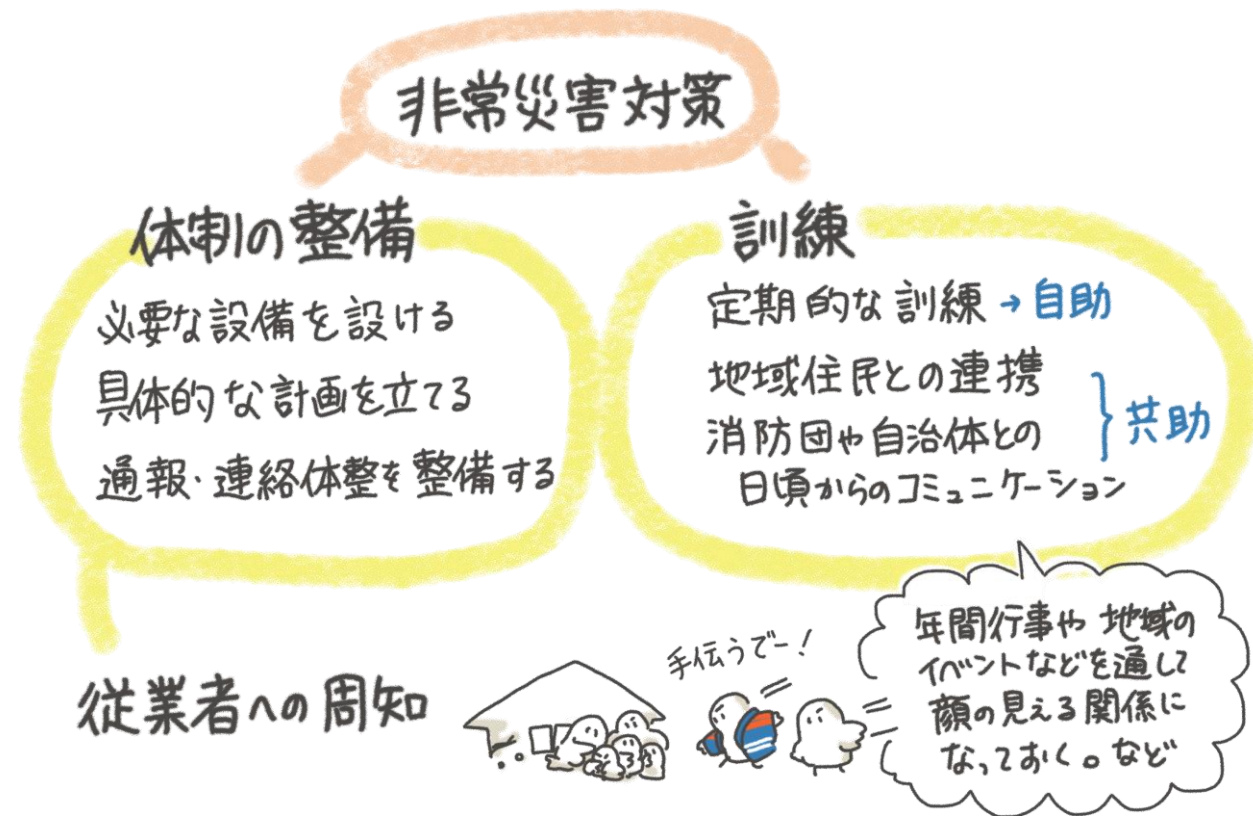 非常災害対策
体制の整備
必要な設備を設ける
具体的な計画を立てる
通報・連絡体整を整備する
従業者への周知
訓練
定期的な訓練→自助
地域住民との連携
消防団や自治体との
日頃からのコミュニケーション
共助
年間行事や地域の
イベントなどを通して
顔の見える関係に
なっておく。など
手伝うでー!